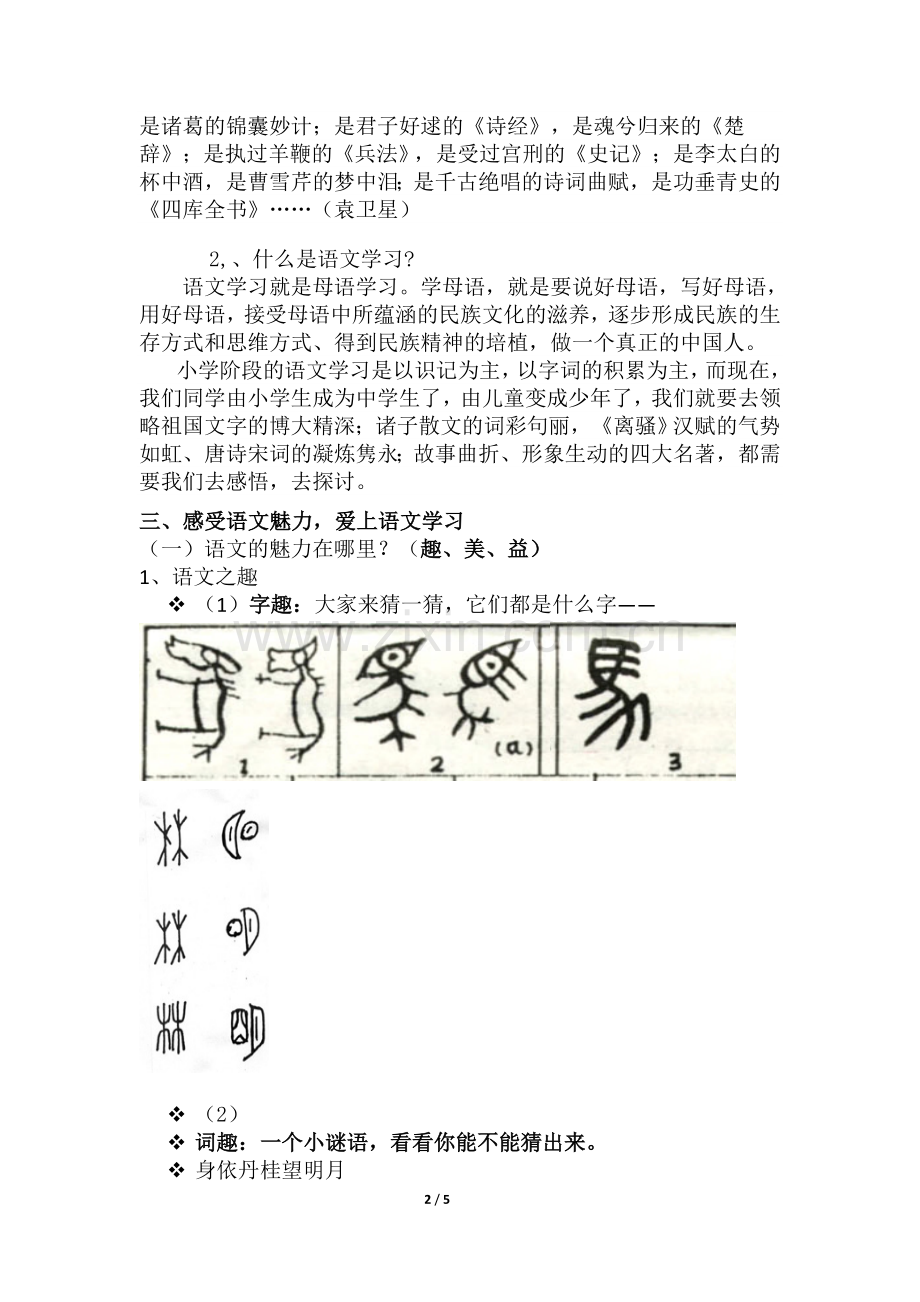 是诸葛的锦囊妙计；是君子好逑的《诗经》，是魂兮归来的《楚
辞》；是执过羊鞭的《兵法》，是受过宫刑的《史记》；是李太白的
杯中酒，是曹雪芹的梦中泪；是千古绝唱的诗词曲赋，是功垂青史的
《四库全书》……（袁卫星）
2,、什么是语文学习?
语文学习就是母语学习。学母语，就是要说好母语，写好母语，
用好母语，接受母语中所蕴涵的民族文化的滋养，逐步形成民族的生
存方式和思维方式、得到民族精神的培植，做一个真正的中国人。
小学阶段的语文学习是以识记为主，以字词的积累为主，而现在，
我们同学由小学生成为中学生了，由儿童变成少年了，我们就要去领
略祖国文字的博大精深；诸子散文的词彩句丽，《离骚》汉赋的气势
如虹、唐诗宋词的凝炼隽永；故事曲折、形象生动的四大名著，都需
要我们去感悟，去探讨。
三、感受语文魅力，爱上语文学习
（一）语文的魅力在哪里？（趣、美、益）
1、语文之趣
❖ （1）字趣：大家来猜一猜，它们都是什么字——
www.zixin.com.cn
1 2 (a) 3
❖ （2）
❖ 词趣：一个小谜语，看看你能不能猜出来。
❖ 身依丹桂望明月
2 / 5